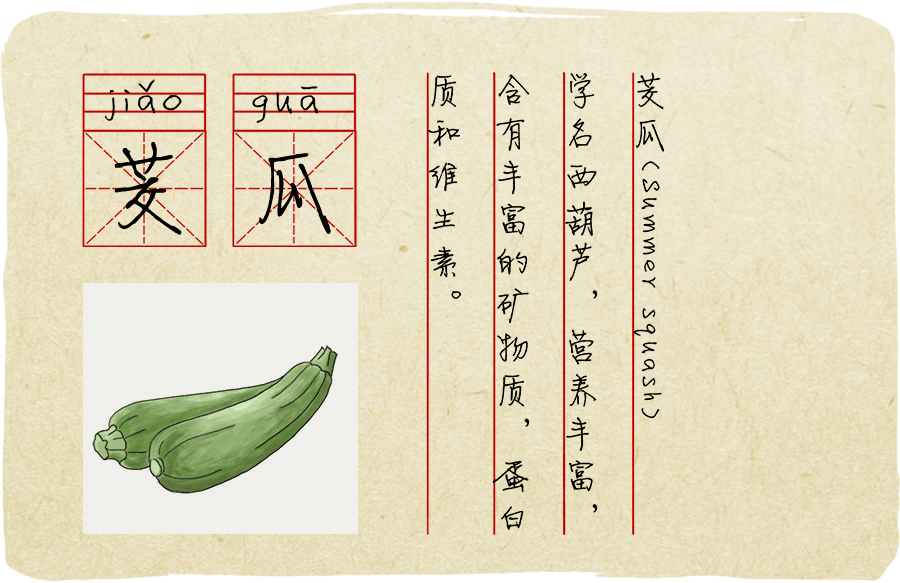 jiǎo guā
茭瓜
茭瓜(Summer squash)
学名西葫芦，营养丰富，
含有丰富的矿物质，蛋白
质和维生素。